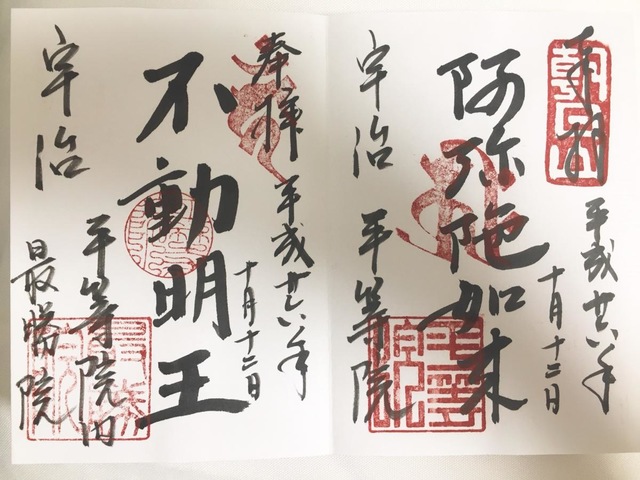 奉拝
朝日山
平成廿六年
十月十二日
阿弥陀如来
宇治 平等院
奉拝
平成廿六年
十月十二日
不動明王
宇治
平等院内
最勝院